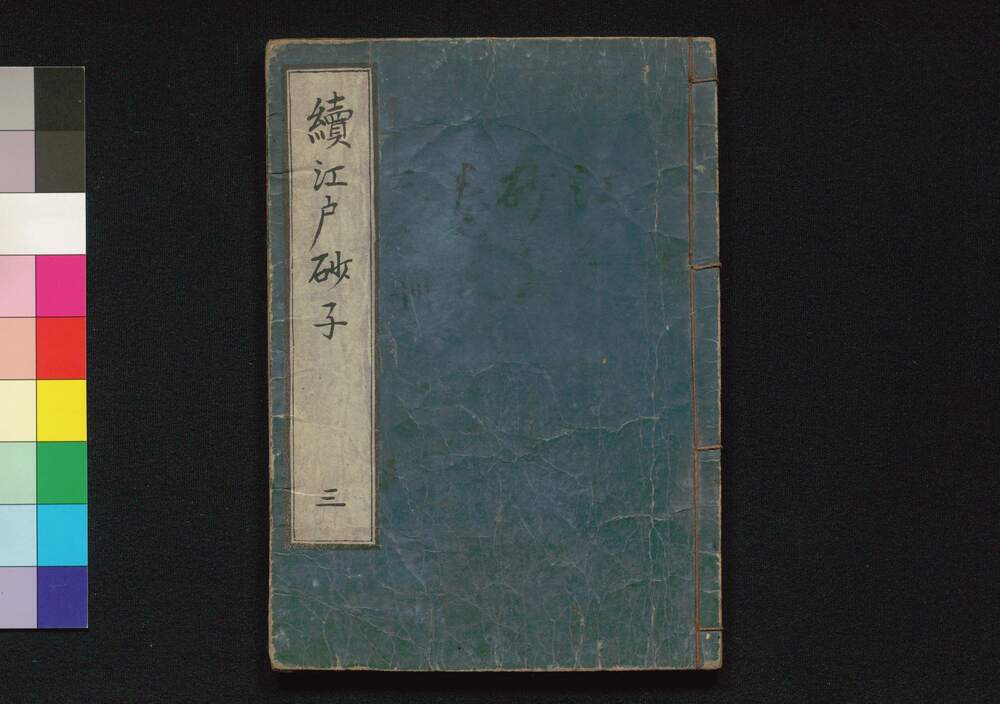 續江戸砂子 三